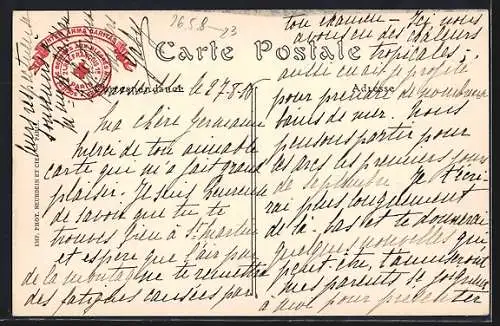 26.5.8 - 23
INTER ARMA CARITAS
Carte Postale
Correspondance
Adresse
le 27-8-
ma chère Germaine
Merci de ton aimable
carte qui m'a fait grand
plaisir. Je suis heureuse
de savoir que tu te
trouves bien à St Martin
et espère que l'air pur
de la montagne te remettra
des fatigues causées par
ton examen - Ici nous
avons eu des chaleurs
tropicales;
aussi en ai-je profité
pour prendre de nombreux
bains de mer. Nous
pensons partir pour
les Arcs les premiers jours
de septembre. Je t'écri
rai plus longuement
de là-bas et te donnerai
quelques nouvelles qui
peut-être, t'amuseront
mes parents se joignent
à moi pour présenter
IMP. PHOT. NEURDEIN ET CIE PARIS